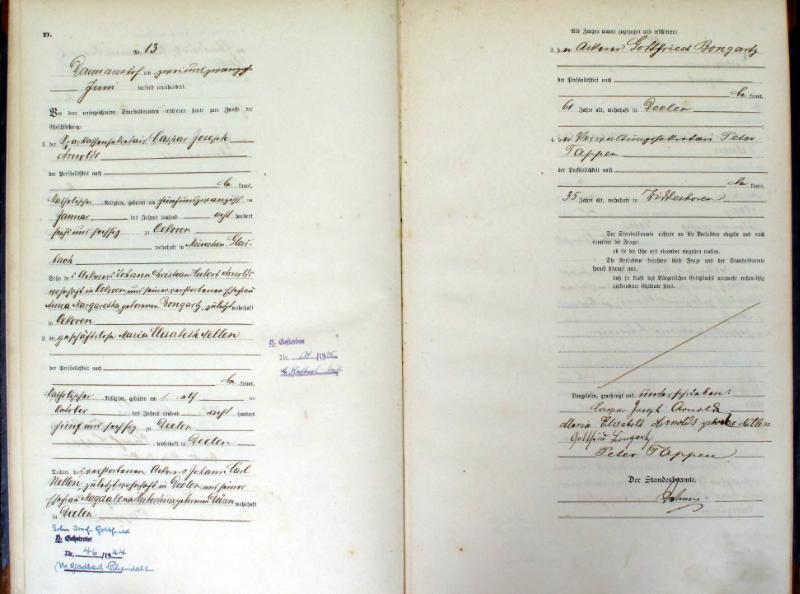 B.
Nr. 13
am zwei und zwanzigsten
Juni tausend neunhundert
Vor dem unterzeichneten Standesbeamten erschienen heute zum Zwecke der
Eheschließung:
1. der Caspar Joseph
Arnolds
der Persönlichkeit nach
be kannt,
katholischer Religion, geboren am fünfundzwanzigsten
Januar des Jahres tausend acht hundert
sechs und sechzig zu
wohnhaft in München Glad-
bach
Sohn des Ackerers Johann Hubert Arnolds
wohnhaft in und seiner verstorbenen Ehefrau
Anna Margaretha geborenen Bongartz zuletzt wohnhaft
in
2. die geschäftslose Maria Elisabeth Nellen
der Persönlichkeit nach
be kannt,
katholischer Religion, geboren am elf ten
October des Jahres tausend acht hundert
fünf und sechzig zu Deelen
wohnhaft in Deelen
Tochter des verstorbenen Ackerers Johann Carl
Nellen, zuletzt wohnhaft in Deelen und seiner
Ehefrau Magdalena geborenen wohnhaft
in Deelen
Sohn Josef Gottfried
H. Geheiratet
Nr. 46/1944
M. Gladbach
H. Gestorben
Nr. /19
M. Gladbach
Als Zeugen waren zugezogen und erschienen:
3. der Ackerer Gottfried Bongartz
der Persönlichkeit nach
be kannt,
61 Jahre alt, wohnhaft in Deelen
4. der Verwaltungssekretär Peter
Tappen
der Persönlichkeit nach
be kannt,
35 Jahre alt, wohnhaft in
Der Standesbeamte richtete an die Verlobten einzeln und nach
einander die Frage:
ob sie die Ehe mit einander eingehen wollen.
Die Verlobten bejahten diese Frage und der Standesbeamte
sprach hierauf aus,
daß sie kraft des Bürgerlichen Gesetzbuchs nunmehr rechtmäßig
verbundene Eheleute seien.
Vorgelesen, genehmigt und unterschrieben:
Caspar Joseph Arnolds
Maria Elisabeth Arnolds geborene Nellen
Gottfried Bongartz
Peter Tappen
Der Standesbeamte.